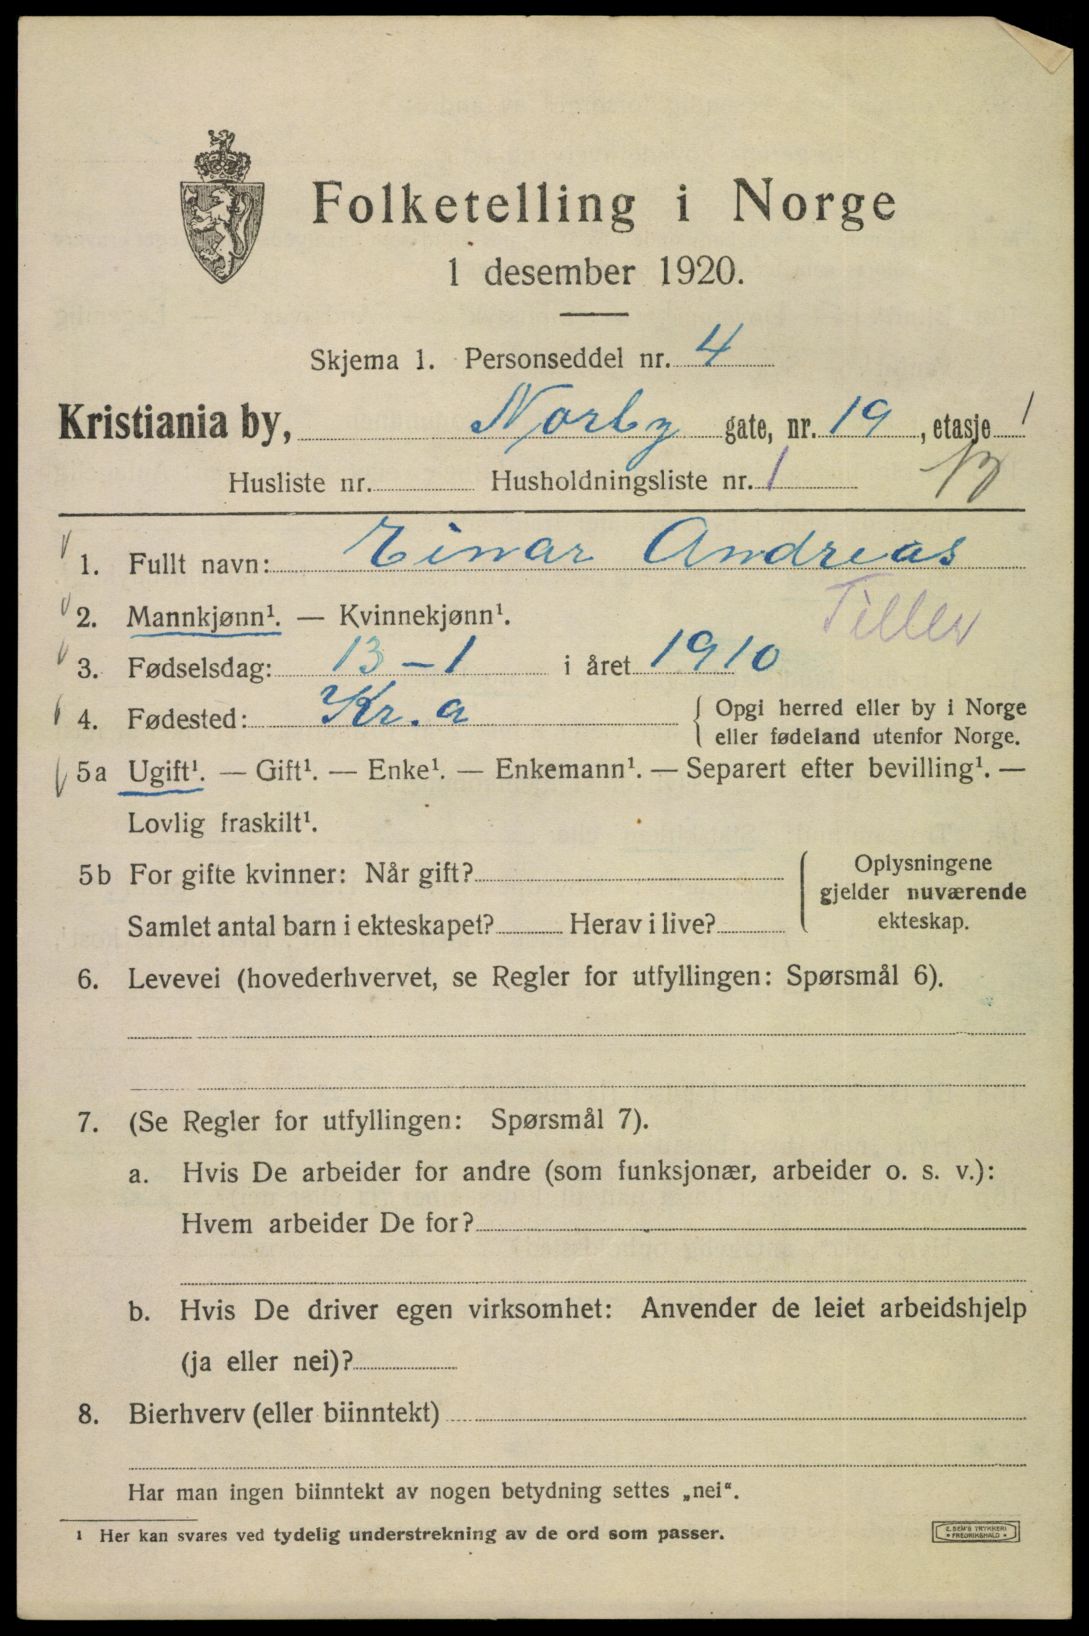 Folketelling i Norge
1 desember 1920.
Skjema 1. Personseddel nr. 4
Kristiania by, Norby gate, nr. 19, etasje 1
Husliste nr. Husholdningsliste nr. 1
1. Fullt navn: Einar Andreas
Tiller
2. Mannkjønn¹. — Kvinnekjønn¹.
3. Fødselsdag: 13-1 i året 1910
4. Fødested: Kr.a { Opgi herred eller by i Norge
eller fødeland utenfor Norge.
5a Ugift¹. — Gift¹. — Enke¹. — Enkemann¹. — Separert efter bevilling¹. —
Lovlig fraskilt¹.
5b For gifte kvinner: Når gift? { Oplysningene
gjelder nuværende
Samlet antal barn i ekteskapet? Herav i live? ekteskap.
6. Levevei (hovederhvervet, se Regler for utfyllingen: Spørsmål 6).
7. (Se Regler for utfyllingen: Spørsmål 7).
a. Hvis De arbeider for andre (som funksjonær, arbeider o. s. v.):
Hvem arbeider De for?
b. Hvis De driver egen virksomhet: Anvender de leiet arbeidshjelp
(ja eller nei)?
8. Bierhverv (eller biinntekt)
Har man ingen biinntekt av nogen betydning settes „nei".
¹ Her kan svares ved tydelig understrekning av de ord som passer.
E. SEM'S TRYKKERI
• FREDRIKSHALD •